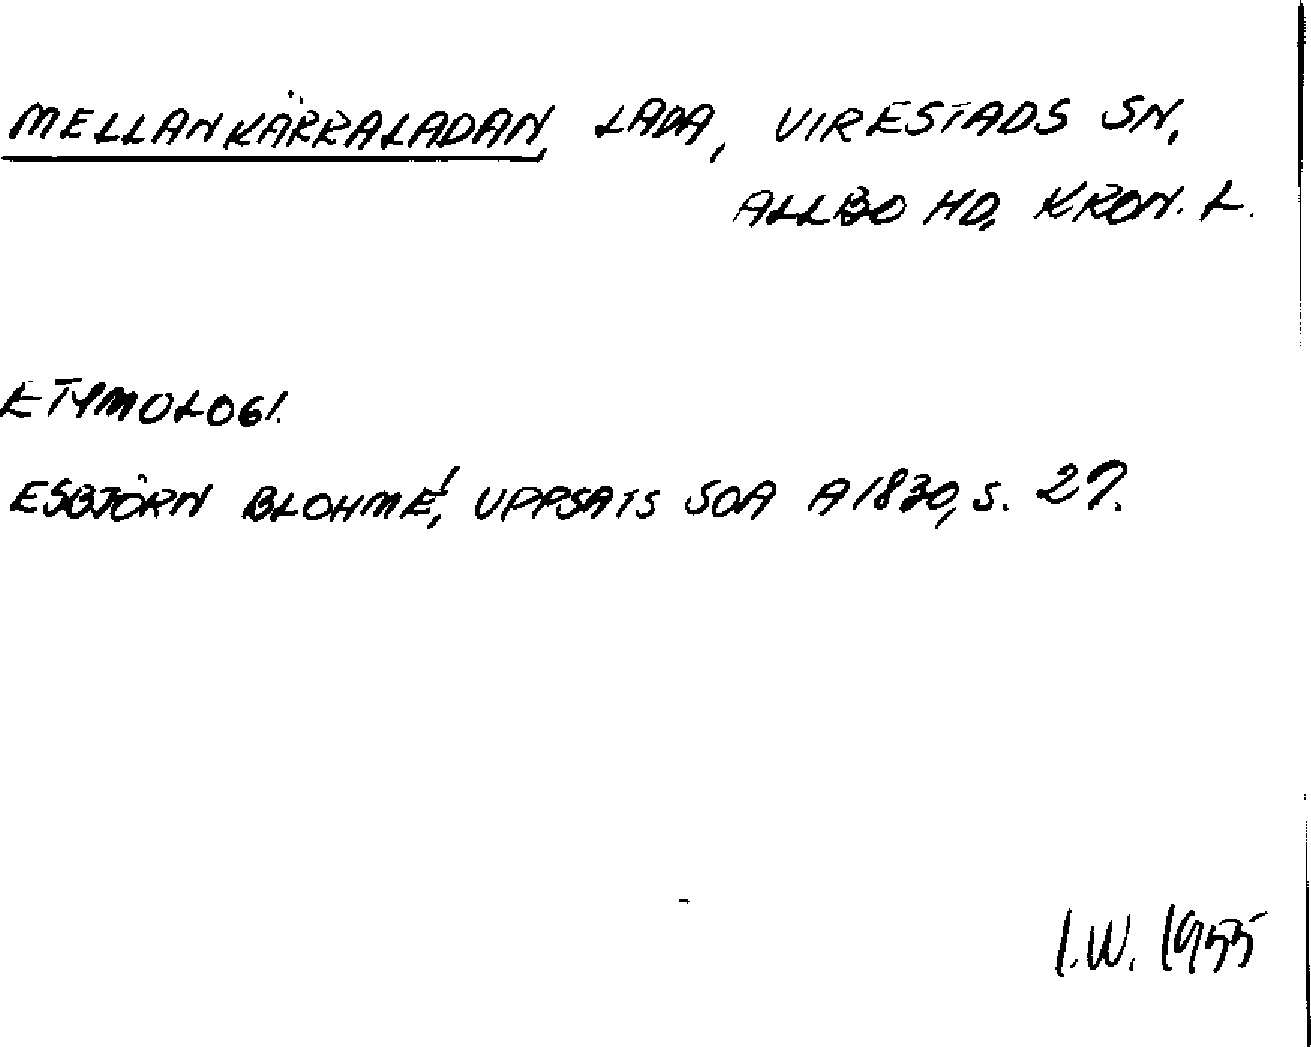 MELLANKÄRRALADAN, LADA, VIRESTADS SN,
ALLBO HD, KRON. L.
ETYMOLOGI.
ESBJÖRN BLOHMÉ, UPPSATS SOA A1830, S. 27.
I.W. 1955